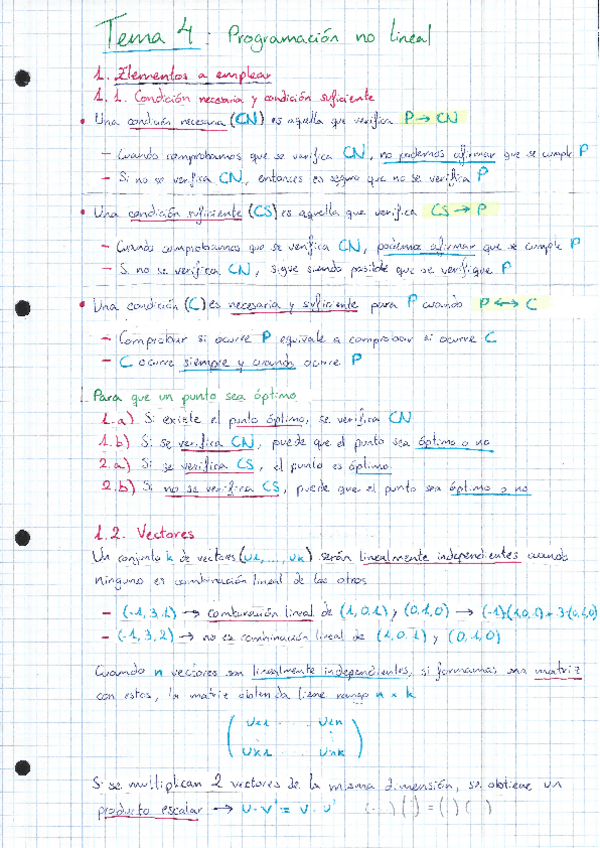 Tema 4: Programación no lineal
1. Elementos a emplear
1.1. Condición necesaria y condición suficiente
• Una condición necesaria (CN) es aquella que verifica P → CN
- Cuando comprobamos que se verifica CN, no podemos afirmar que se cumple P
- Si no se verifica CN, entonces es seguro que no se verifica P
• Una condición suficiente (CS) es aquella que verifica CS → P
- Cuando comprobamos que se verifica CN, podemos afirmar que se cumple P
- Si no se verifica CN, sigue siendo posible que se verifique P
• Una condición (C) es necesaria y suficiente para P cuando P ↔ C
- Comprobar si ocurre P equivale a comprobar si ocurre C
- C ocurre siempre y cuando ocurre P
Para que un punto sea óptimo
1.a) Si existe el punto óptimo, se verifica CN
1.b) Si se verifica CN, puede que el punto sea óptimo o no
2.a) Si se verifica CS, el punto es óptimo
2.b) Si no se verifica CS, puede que el punto sea óptimo o no
1.2. Vectores
Un conjunto k de vectores (u1, ..., uk) serán linealmente independientes cuando
ninguno es combinación lineal de los otros
- (-1, 3, 1) → combinación lineal de (1, 0, 1) y (0, 1, 0) →
- (-1, 3, 2) → no es combinación lineal de (1, 0, 1) y (0, 1, 0)
Cuando n vectores son linealmente independientes, si formamos una matriz
con estos, la matriz obtenida tiene rango n × k
Si se multiplican 2 vectores de la misma dimensión, se obtiene un
producto escalar → u · v' = v · u'